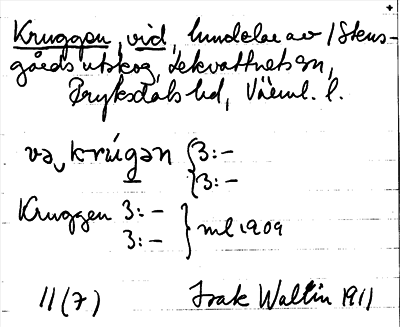 Kruggen, vid, hundelar av /Stens-
gårds utskog, Lekvattnets sn,
Fryksdals hd, Värml. l.
va krúgan { 3:-
3:-
Kruggen 3:-
3:- } ml. 1909
11(7) Isak Wallin 1911